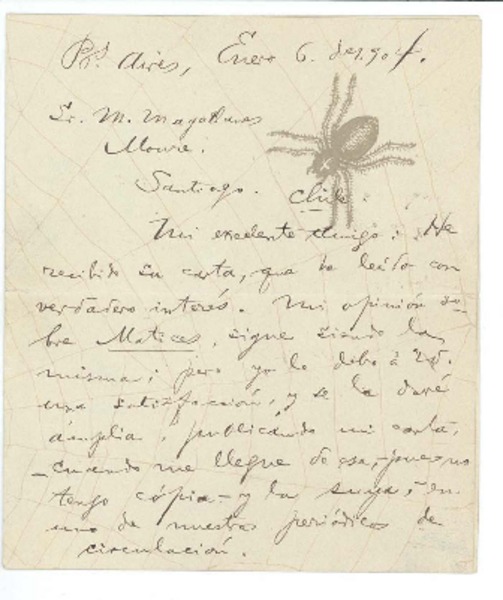 Bs. Aires, Enero 6. de 1904.
Sr. M. Magallanes
Moure.
Santiago. Chile.
Mi excelente amigo: He
recibido su carta, que he leído con
verdadero interés. Mi opinión so-
bre Matices, sigue siendo la
misma; pero yo le debo á Ud.
una satisfacción, y se la daré
ámplia, publicando mi carta,
- cuando me llegue de esa, - pues no
tengo cópia - y la suya, en
uno de nuestros periódicos de
circulación.